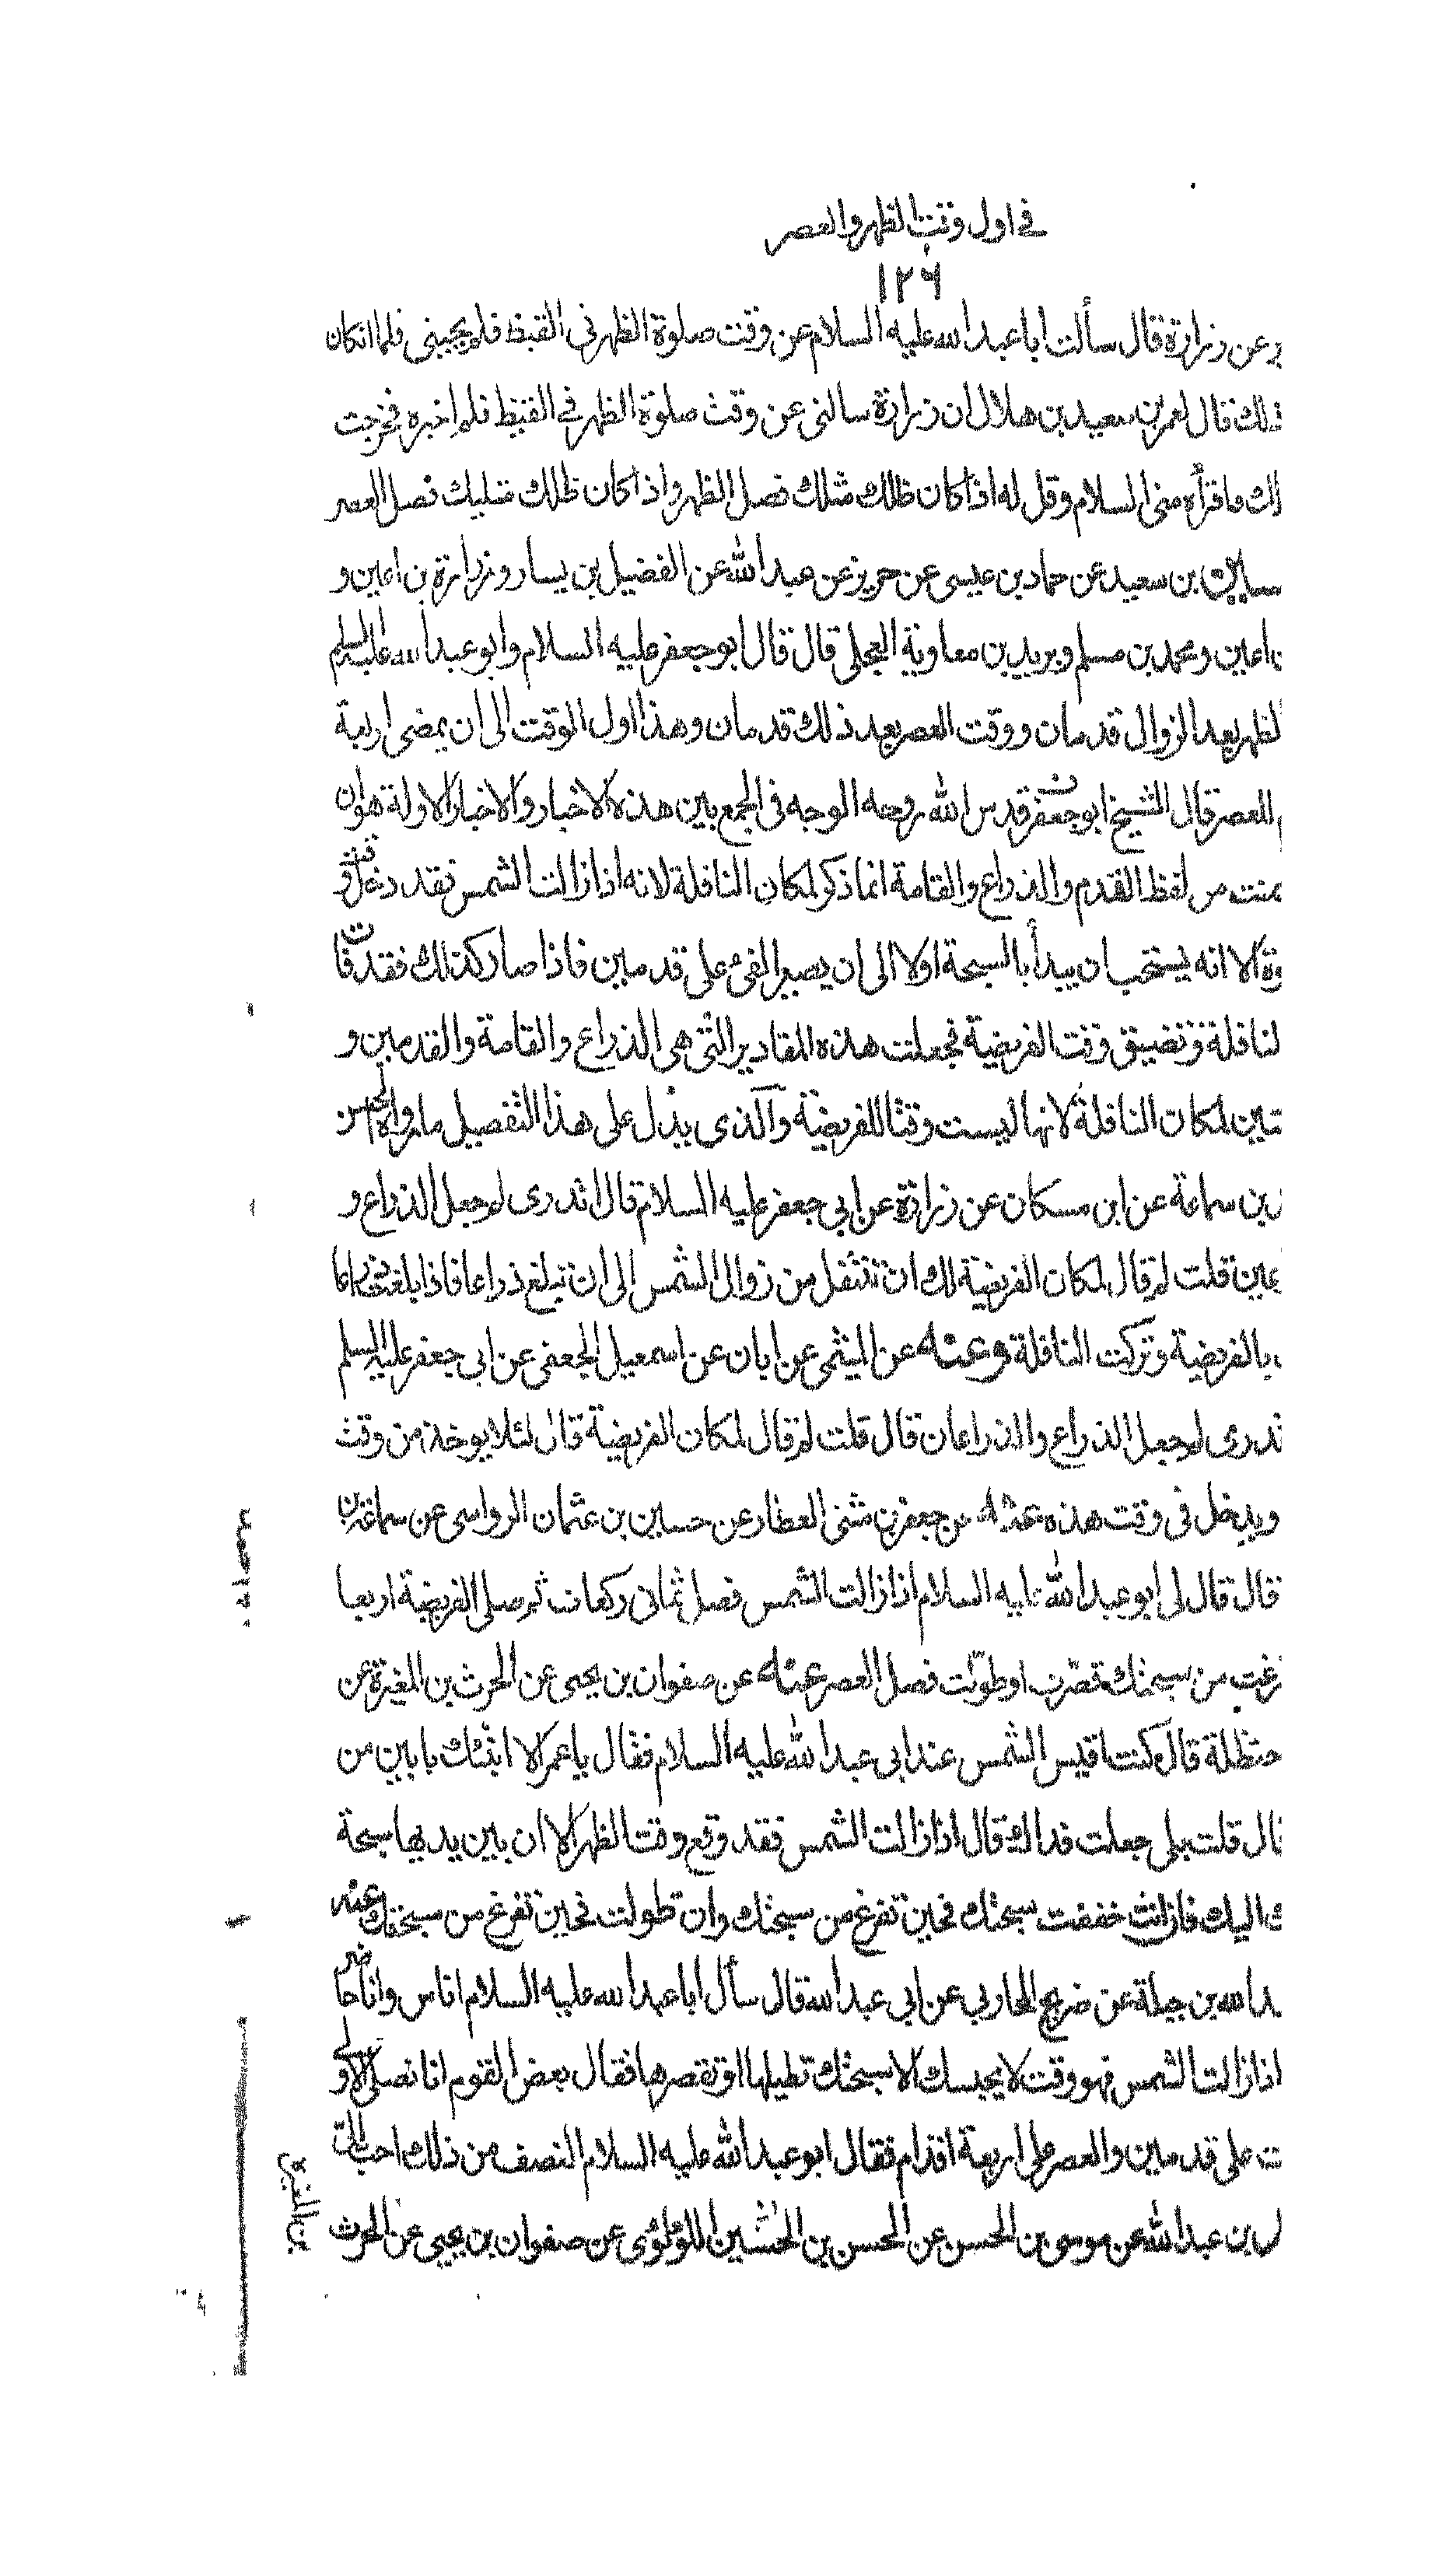 في اول وقت الظهر والعصر
١٢٦
عن زرارة قال سألت ابا عبد الله عليه السلام عن وقت صلوة الظهر في القيظ فلم يجبني فلما ان كان
ذلك قال لعمر بن سعيد بن هلال ان زرارة سالني عن وقت صلوة الظهر في القيظ فلم اخبره فخرجت
ذلك فاقرأه مني السلام وقل له اذا كان ظلك مثلك فصل الظهر واذا كان ظلك مثليك فصل العصر
بن سعيد عن حماد بن عيسى عن حريز عن عبد الله عن الفضيل بن يسار وزرارة بن اعين و
اعين ومحمد بن مسلم وبريد بن معاوية العجلي قال قال ابو جعفر عليه السلام وابو عبد الله عليه السلم
الظهر بعد الزوال قدمان ووقت العصر بعد ذلك قدمان وهذا اول الوقت الى ان يمضي اربعة
للعصر قال الشيخ ابو جعفر قدس الله روحه الوجه في الجمع بين هذه الاخبار والاخبار الاولة هو ان
من لفظ القدم والذراع والقامة انما ذكر لمكان النافلة لانه اذا زالت الشمس فقد دخل وقت
الا انه يستحب ان يبدأ بالسبحة اولا الى ان يصير الفئ على قدمين فاذا صار كذلك فقد فات
النافلة وتضيق وقت الفريضة فجعلت هذه المقادير التي هي الذراع والقامة والقدمين و
لمكان النافلة لانها ليست وقتا للفريضة والذي يدل على هذا التفصيل ما رواه الحسن
بن سماعة عن ابن مسكان عن زرارة عن ابي جعفر عليه السلام قال اتدرى لم جعل الذراع و
قلت لم قال لمكان الفريضة لك ان تتنفل من زوال الشمس الى ان تبلغ ذراعا فاذا بلغت ذراعا
بالفريضة وتركت النافلة وعنه عن الميثمى عن ابان عن اسمعيل الجعفى عن ابى جعفر عليه السلم
تدرى لم جعل الذراع والذراعان قال قلت لم قال لمكان الفريضة قال لئلا يوخذ من وقت
ويدخل في وقت هذه عنه عن جعفر بن مثنى العطار عن حسين بن عثمان الرواسى عن سماعة بن
قال قال لي ابو عبد الله عليه السلام اذا زالت الشمس فصل ثمانى ركعات ثم صلى الفريضة اربعا
فرغت من سبحتك قصرت او طولت فصل العصر عنه عن صفوان بن يحيى عن الحرث بن المغيرة عن
حنظلة قال كنت اقيس الشمس عند ابى عبد الله عليه السلام فقال يا عمر الا انبئك بابين من
قال قلت بلى جعلت فداك قال اذا زالت الشمس فقد وقع وقت الظهر الا ان بين يديها سبحة
اليك فان انت خففت سبحتك فحين تفرغ من سبحتك وان طولت فحين تفرغ من سبحتك عنه
عبد الله بن جبلة عن ذريح المحاربي عن ابي عبد الله قال سأل ابا عبد الله عليه السلام اناس وانا حاضر
اذا زالت الشمس فهو وقت لا يحبسك الا سبحتك تطيلها او تقصرها فقال بعض القوم انا نصلى الاولى
على قدمين والعصر على اربعة اقدام فقال ابو عبد الله عليه السلام النصف من ذلك احب الى
بن عبد الله عن موسى بن الحسن عن الحسن بن الحسين اللؤلؤى عن صفوان بن يحيى عن الحرث
بن المغيرة